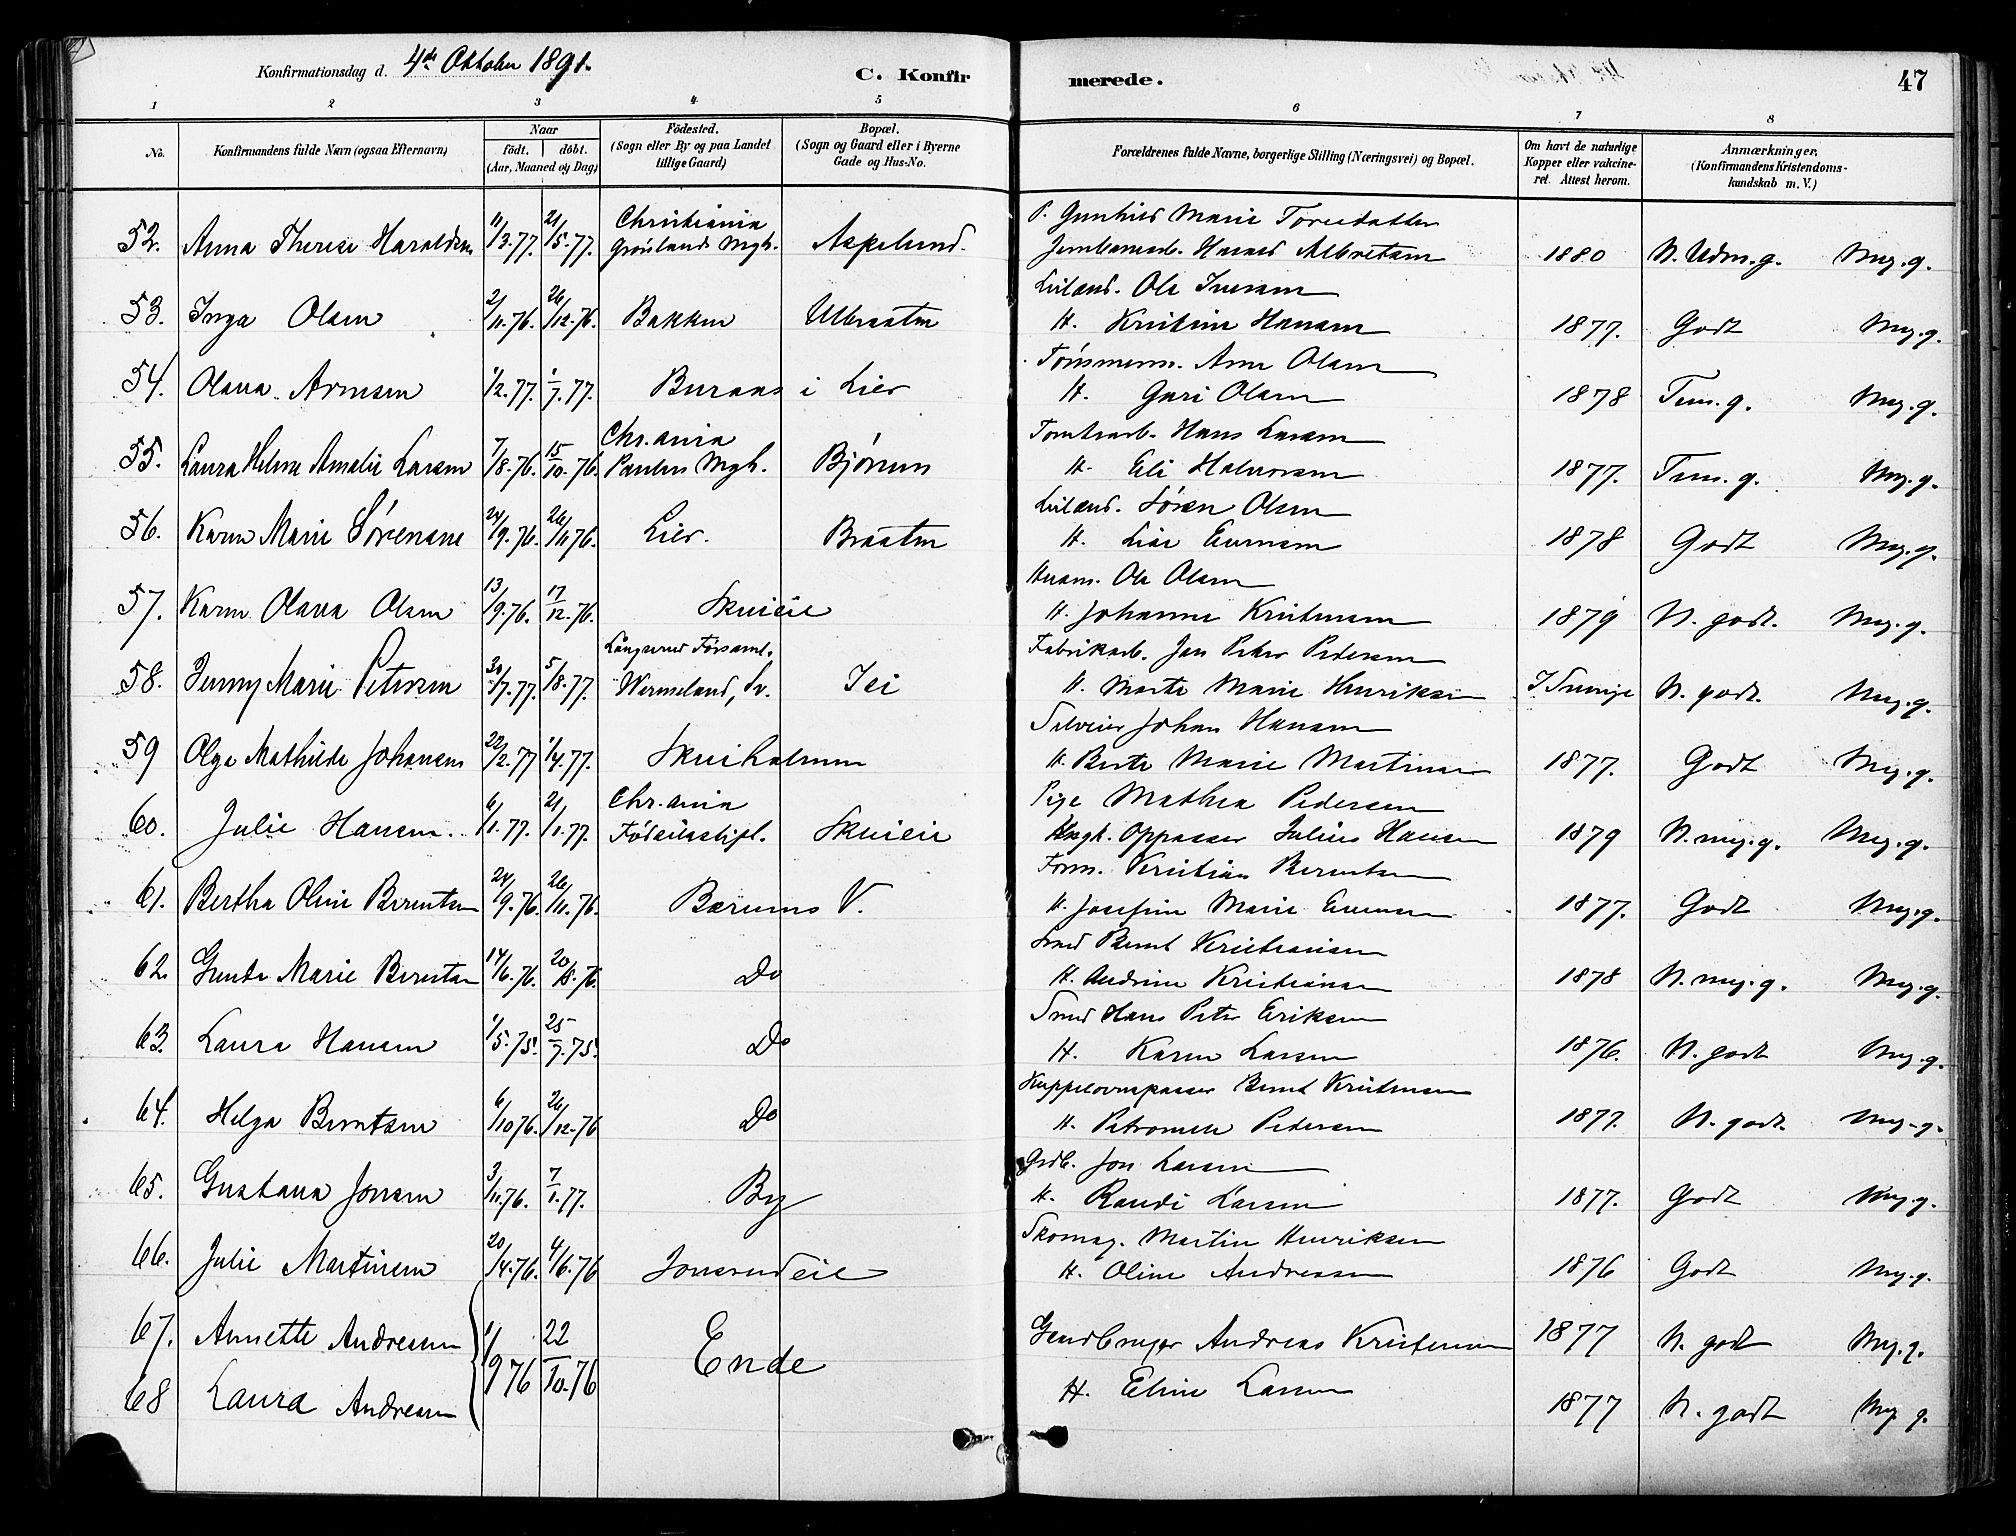 Konfirmationsdag d. 4de Oktober 1891.
C. Konfirmerede.
47
1 2 3 4 5 6 7 8
No.
Konfirmandens fulde Navn (ogsaa Efternavn)
Naar
födt. döbt.
(Aar, Maaned og Dag)
Födested.
(Sogn eller By og paa Landet
tillige Gaard)
Bopæl.
(Sogn og Gaard eller i Byerne
Gade og Hus-No.
Forældrenes fulde Navne, borgerlige Stilling (Næringsvei) og Bopæl.
Om havt de naturlige
Kopper eller vakcine-
ret. Attest herom.
Anmærkninger.
(Konfirmandens Kristendoms-
kundskab m. V.)
Christiania P. Gunhild Marie Toresdatter
52. Anna Therese Haraldsen 11/3.77. 21/5.77. Grønlands Mgh. Aspelund. Jernbanearb. Harald Albretsen 1880 N. Udm.g. Mg.g.
Leilænd. Ole Iversen
53. Inga Olsen 2/11.76. 26/12.76. Bakken Ulbraaten H. Kristine Hansen 1877. Godt Mg.g.
Tømmerm. Arne Olsen
54. Olava Arnesen 1/2.77. 1/7.77. Buraas i Lier H. Guri Olsen 1878 Tem.g. Mg.g.
Chr.ania Tomtearb. Hans Larsen
55. Laura Helene Amalie Larsen 7/8.76. 15/10.76. Paulus Mgh. Bjørum H. Eli Halvorsen 1877. Tem.g. Mg.g.
Leilænd. Sören Olsen
56. Karen Marie Sörensen 24/9.76. 26/11.76. Lier. Braaten H. Lise Evensen 1878 Godt Mg.g.
Husm. Ole Olsen
57. Karen Olava Olsen 13/9.76. 17/12.76. Skuieie H. Johanne Kristensen 1879 N. godt. Mg.g.
Långserud Församl. Fabrikarb. Jan Peter Pedersen
58. Jenny Marie Petersen 30/7.77. 5/8.77. Wermeland, Sv. Isi H. Marte Marie Henriksen I Sverige N. godt. Mg.g.
Selveier Johan Hansen
59 Olga Mathilde Johansen 22/2.77 1/4.77. Skuiholmen H. Berte Marie Martinsen 1877. Godt Mg.g.
Chr.ania Pige Mathea Pedersen
60. Julie Hansen. 6/1.77. 21/1.77. Födselsstift. Skuieie Ungk. Oppasser Julius Hansen 1879 N. mg.g. Mg.g.
Form. Kristian Berentsen
61. Bertha Oline Berentsen 24/9.76. 26/11.76. Bærums V. H. Josefine Marie Evensen 1877. Godt Mg.g.
Smed Bernt Kristiansen
62. Gunda Marie Berntsen 14/6.76. 20/8.76. Do H. Andrine Kristiansen 1878 N. mg.g. Mg.g.
Smed Hans Peter Eriksen
63. Laura Hansen 1/5.75. 25/7.75. Do H. Karen Larsen 1876. N. godt Mg.g.
Kuppelovnspasser Bernt Kristensen
64. Helga Berntsen 6/10.76. 26/12.76 Do H. Petronelle Pedersen 1877. N. godt. Mg.g.
Grdb. Jon Larsen
65. Gustava Jonsen 3/11.76. 7/1.77. By H. Randi Larsen 1877. Godt Mg.g.
Skomag. Martin Henriksen
66. Julie Martinsen 20/4.76. 4/6.76 Jonsrudeie H. Oline Andreasen 1876 Godt Mg.g.
67. Annette Andresen 1/9 76 22/10.76 Ende Gaardbruger Andreas Kristensen 1877 N. godt Mg.g.
68 Laura Andresen H. Eline Larsen 1877 N. godt Mg g.